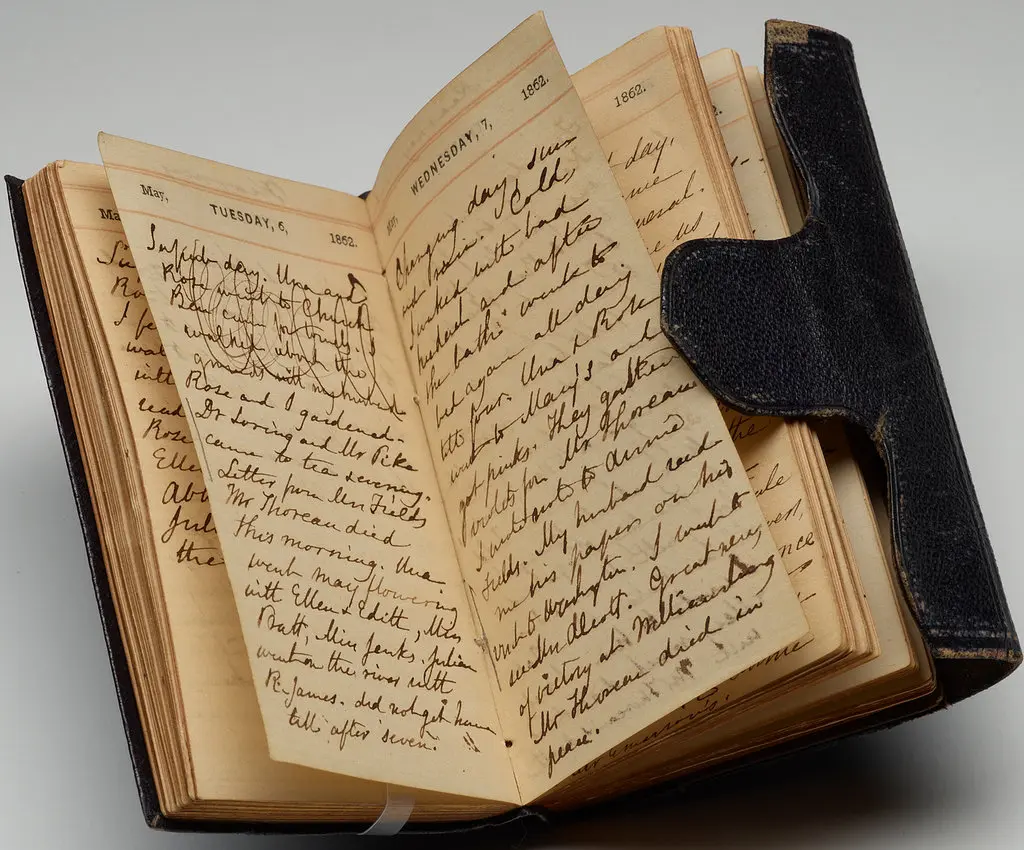 Ma
Su
Ro
I fe
wa
with
read
Rose
Elle
Abo
Jul
the
May,
TUESDAY, 6,
1862.
day. Una and
Rose went to Church
walked about the
grounds with my husband
Rose and I gardened.
Dr Loring and Mr Pike
came to tea evening.
Letter from Mrs Fields
Mr Thoreau died
this morning. Una
went May flowering
with Ellen & Edith, Miss
Pratt, Miss Jenks, Julian
went on the river with
R. James. did not get home
till after seven.
May,
WEDNESDAY, 7,
1862.
Changing day, sun
and rain. Cold,
I waked with bad
headache and after
the bath went to
bed again all day
till four. Una & Rose
went to Mary's and
got pinks. They gathered
violets for Mr Thoreau
I wrote note to Annie
Fields. My husband read
me his papers on his
visit to Washington. I went to
see Mrs Alcott. Great news
of victory at Williamsburg
Mr Thoreau died in
peace.
1862.
day,
me
neral.
e us
2.
the
ule
ven,
nce